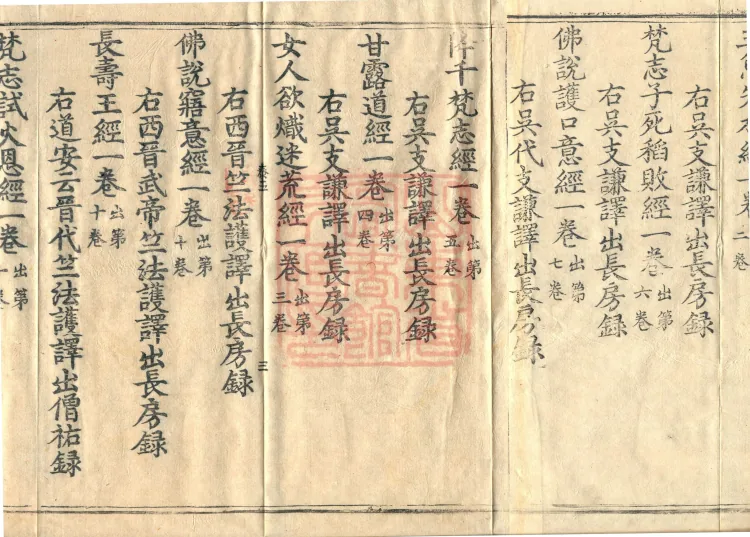 經一卷二卷
右吳支謙譯出長房録
梵志子死稻敗經一卷出第六卷
右吳支謙譯出長房録
佛說護口意經一卷出第七卷
右吳代支謙譯出長房録
千梵志經一卷出第五卷
右吳支謙譯出長房録
甘露道經一卷出第四卷
右吳支謙譯出長房録
女人欲熾迷荒經一卷出第三卷
右西晉竺法護譯出長房録
卷三 三
佛說寤意經一卷出第十卷
右西晉武帝竺法護譯出長房録
長壽王經一卷出第十卷
右道安云晉代竺法護譯出僧祐録
梵志試火恩經一卷出第